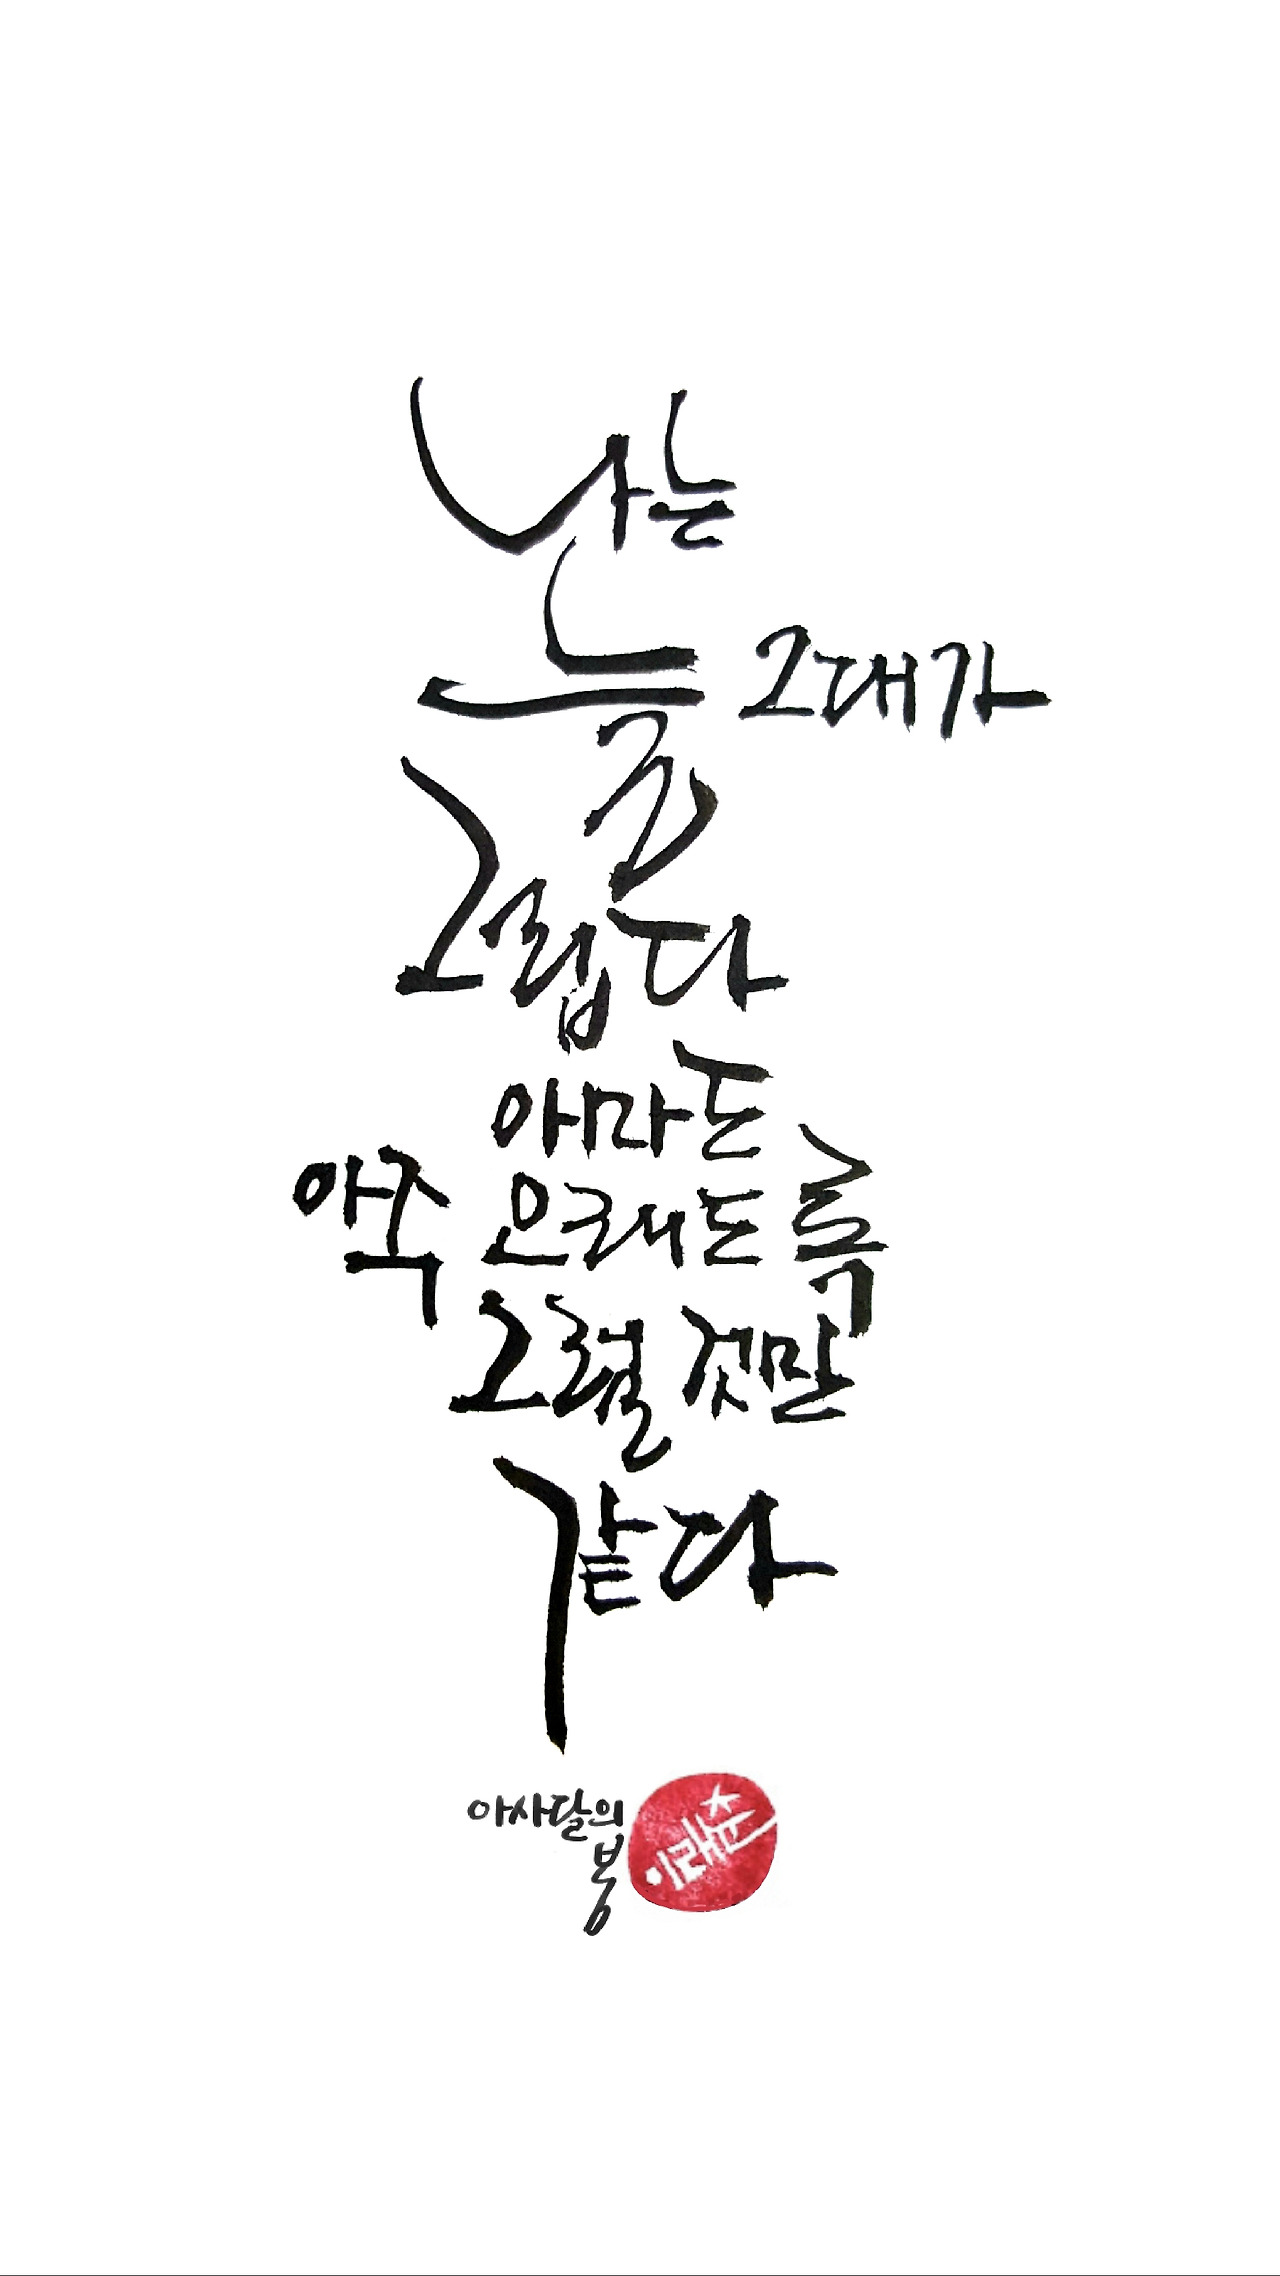 나는
늘 그대가
그립다
아마도
아주 오래도록
그럴 것만
같다
아사달의
봄
이래춘